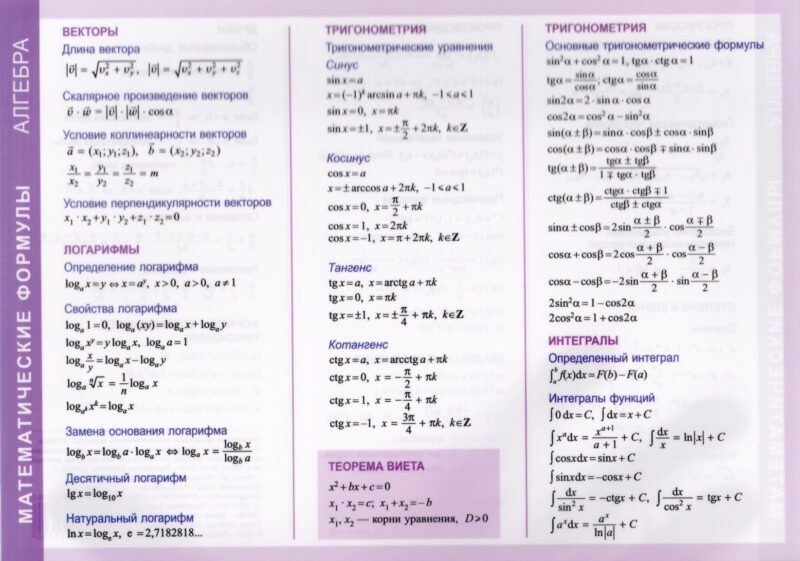 МАТЕМАТИЧЕСКИЕ ФОРМУЛЫ АЛГЕБРА
ВЕКТОРЫ
Длина вектора
|v̄| = √(vₓ² + vᵧ²), |v̄| = √(vₓ² + vᵧ² + vₓ²)
Скалярное произведение векторов
v̄ · w̄ = |v̄| · |w̄| · cosα
Условие коллинеарности векторов
ā = (x₁; y₁; z₁), b̄ = (x₂; y₂; z₂)
x₁/x₂ = y₁/y₂ = z₁/z₂ = m
Условие перпендикулярности векторов
x₁ · x₂ + y₁ · y₂ + z₁ · z₂ = 0
ЛОГАРИФМЫ
Определение логарифма
logₐ x = y ⇔ x = aʸ, x > 0, a > 0, a ≠ 1
Свойства логарифма
logₐ 1 = 0, logₐ (xy) = logₐ x + logₐ y
logₐ xʸ = y logₐ x, logₐ a = 1
logₐ x/y = logₐ x − logₐ y
logₐ ⁿ√x = 1/n logₐ x
log_{aᵏ} xᵏ = logₐ x
Замена основания логарифма
log_b x = log_b a · logₐ x ⇔ logₐ x = log_b x / log_b a
Десятичный логарифм
lg x = log₁₀ x
Натуральный логарифм
ln x = logₑ x, e = 2,7182818...
ТРИГОНОМЕТРИЯ
Тригонометрические уравнения
Синус
sin x = a
x = (−1)ᵏ arcsin a + πk, −1 < a < 1
sin x = 0, x = πk
sin x = ±1, x = ± π/2 + 2πk, k∈Z
Косинус
cos x = a
x = ± arccos a + 2πk, −1 < a < 1
cos x = 0, x = π/2 + πk
cos x = 1, x = 2πk
cos x = −1, x = π + 2πk, k∈Z
Тангенс
tg x = a, x = arctg a + πk
tg x = 0, x = πk
tg x = ±1, x = ± π/4 + πk, k∈Z
Котангенс
ctg x = a, x = arcctg a + πk
ctg x = 0, x = − π/2 + πk
ctg x = 1, x = − π/4 + πk
ctg x = −1, x = 3π/4 + πk, k∈Z
ТЕОРЕМА ВИЕТА
x² + bx + c = 0
x₁ · x₂ = c; x₁ + x₂ = −b
x₁, x₂ — корни уравнения, D ≥ 0
ТРИГОНОМЕТРИЯ
Основные тригонометрические формулы
sin²α + cos²α = 1, tgα · ctgα = 1
tgα = sinα/cosα; ctgα = cosα/sinα
sin2α = 2 · sinα · cosα
cos2α = cos²α − sin²α
sin(α ± β) = sinα · cosβ ± cosα · sinβ
cos(α ± β) = cosα · cosβ ∓ sinα · sinβ
tg(α ± β) = (tgα ± tgβ)/(1 ∓ tgα · tgβ)
ctg(α ± β) = (ctgα · ctgβ ∓ 1)/(ctgβ ± ctgα)
sinα ± sinβ = 2sin (α ± β)/2 · cos (α ∓ β)/2
cosα + cosβ = 2cos (α + β)/2 · cos (α − β)/2
cosα − cosβ = −2sin (α + β)/2 · sin (α − β)/2
2sin²α = 1 − cos2α
2cos²α = 1 + cos2α
ИНТЕГРАЛЫ
Определенный интеграл
∫ₐᵇ f(x)dx = F(b) − F(a)
Интегралы функций
∫0 dx = C, ∫dx = x + C
∫xᵃdx = xᵃ⁺¹/(a + 1) + C, ∫dx/x = ln|x| + C
∫cosxdx = sinx + C
∫sinxdx = −cosx + C
∫dx/sin² x = −ctgx + C, ∫dx/cos² x = tgx + C
∫aˣdx = aˣ/ln|a| + C